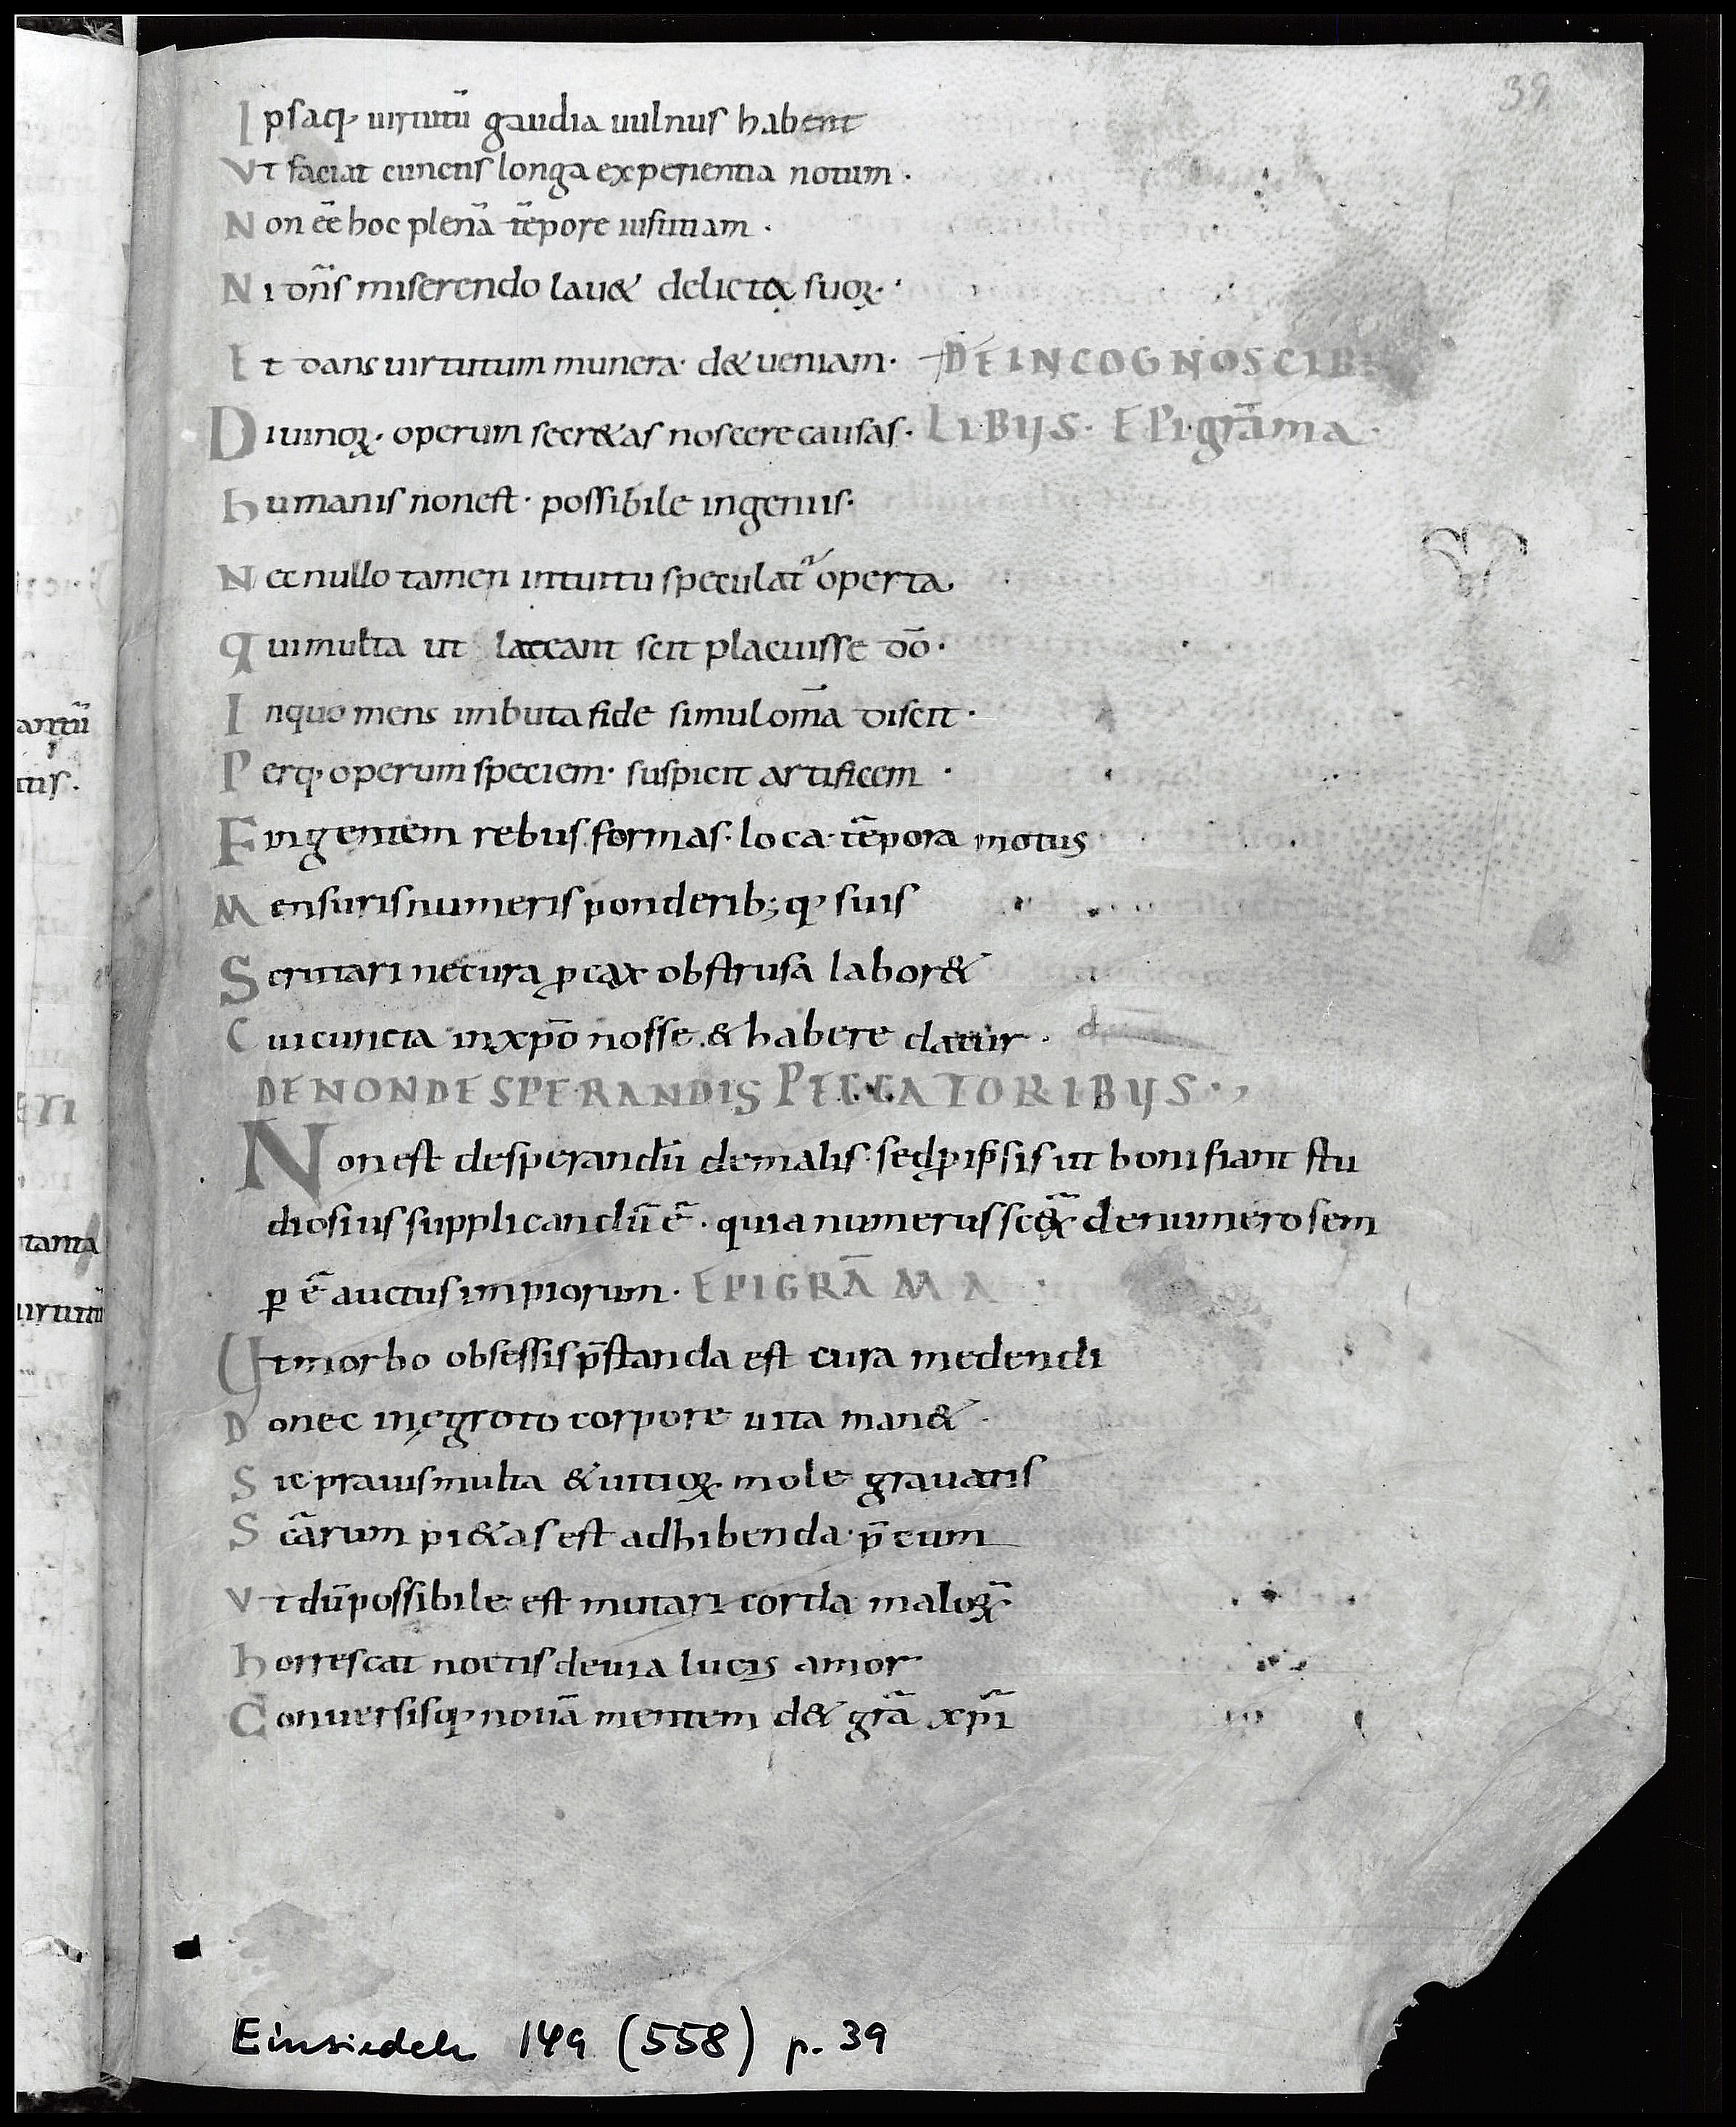 39
Ipsaq; uirtutū gaudia uulnus habent
Vt faciat cunctis longa experientia notum.
Non eē hoc plenā tēpore iustitiam.
Ni dn̄s miserendo lau& delicta suoꝝ.
Et dans uirtutum munera. d& ueniam. DE INCOGNOSCIBI
Diuinoꝝ. operum secr&as noscere causas. LIBUS. EPigrāma.
humanis non est. possibile ingeniis.
Nec nullo tamen intuitu speculat᷑ operta.
qui multa ut lateant scit placuisse dō.
In quo mens imbuta fide simul om̄a discit.
Perq; operum speciem. suspicit artificem.
Fingentem rebus formas. loca. tēpora motus
Mensuris numeris ponderib; q; suis
Scrutari ne cura ꝓcax obstrusa labor&
Cui cuncta in xpō nosse. & habere datur.
DE NON DESPERANDIS PECCATORIBUS.
Non est desperandū de malis. sed ꝓ ipsis ut boni fiant stu
diosius supplicandū ē. quia numerus scōꝝ de numero sem
ꝑ ē auctus impiorum. EPIGRĀMA
Ut morbo obsessis p̄standa est cura medendi
Donec in ęgroto corpore uita man&.
Sic prauis multa & uitioꝝ mole grauatis
Scārum pi&as est adhibenda p̄cum
Vt dū possibile est mutari corda maloꝝ
horrescat noctis deuia lucis amor
Conuersisq; nouā mentem d& grā xpī
Einsiedeln 149 (558) p. 39